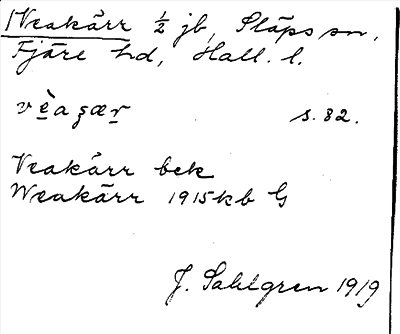 Veakärr ½ jb, Släps sn,
Fjäre hd, Hall. l.
vèagær s. 82.
Veakärr bek
Weakärr 1915 kb G
J. Sahlgren 1919